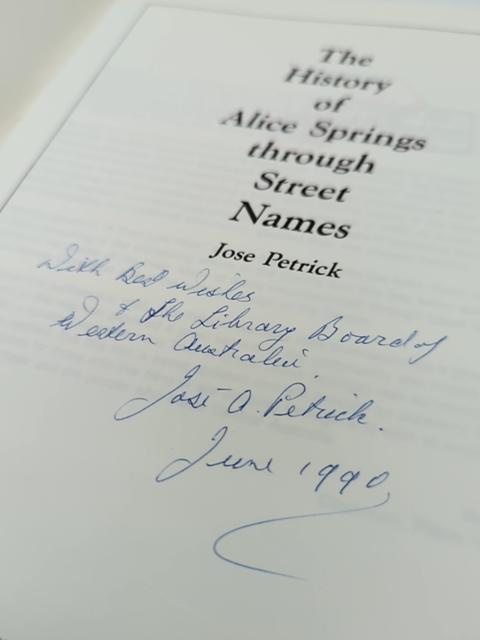 The
History
of
Alice Springs
through
Street
Names
Jose Petrick
With Best Wishes
to the Library Board of
Western Australia.
José A. Petrick.
June 1990